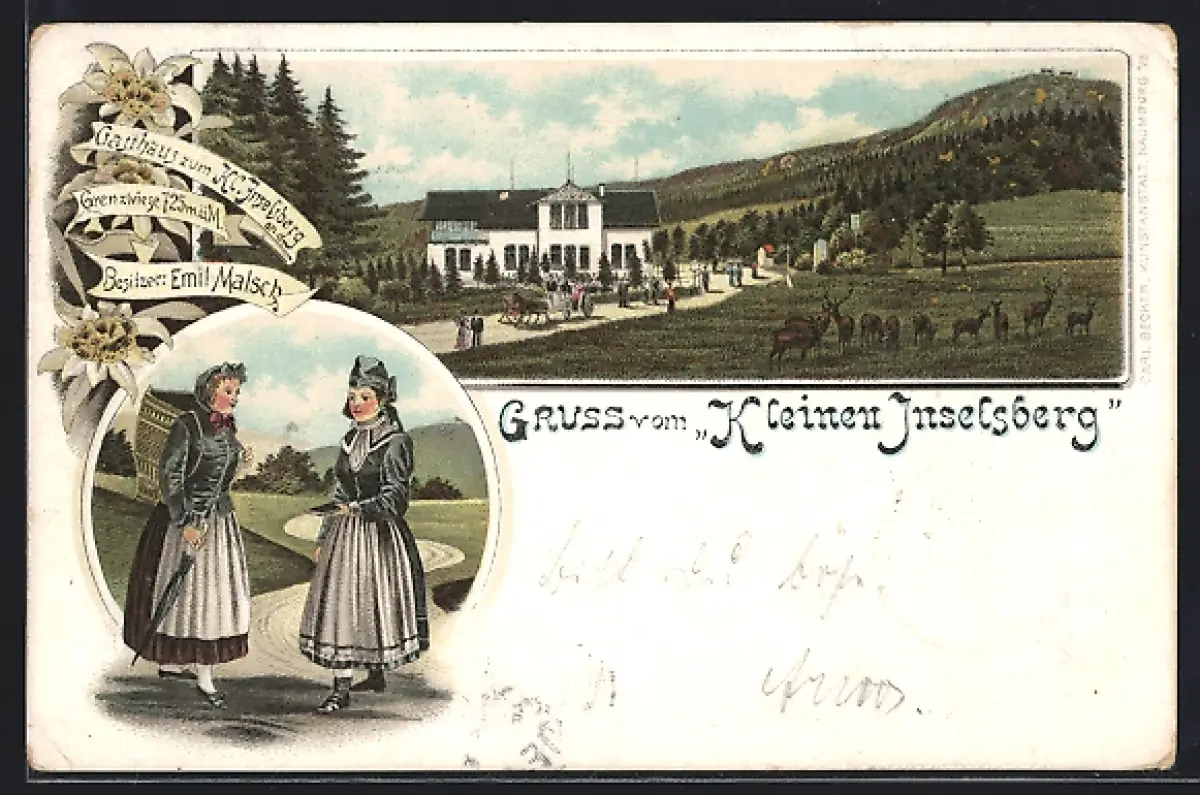 Gasthaus zum Kl. Inselsberg
Grenzwiese 725 m ü M.
Besitzer: Emil Malsch
GRUSS vom „Kleinen Inselsberg"
CARL BECKER, KUNSTANSTALT, NAUMBURG a/S